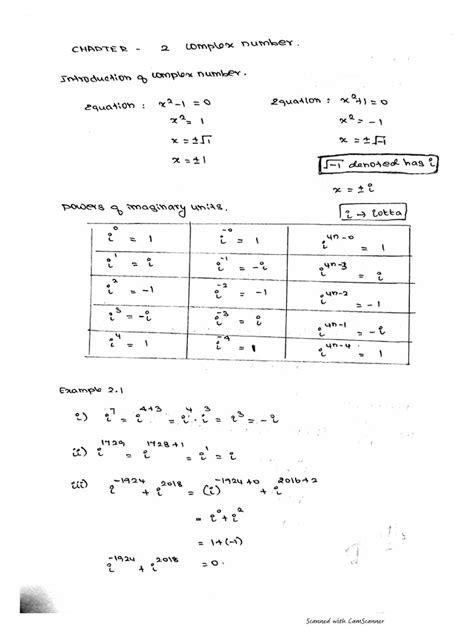 CHAPTER - 2 Complex number.
Introduction of Complex number.
Equation : x²-1 = 0
x² = 1
x = ±√1
x = ±1
Equation : x²+1 = 0
x² = -1
x = ±√-1
√-1 denoted has i
x = ± i
i → iotta
Powers of imaginary units.
i⁰ = 1 i⁻⁰ = 1 i⁴ⁿ⁻⁰ = 1
i¹ = i i⁻¹ = -i i⁴ⁿ⁻³ = i
i² = -1 i⁻² = -1 i⁴ⁿ⁻² = -1
i³ = -i i⁻³ = i i⁴ⁿ⁻¹ = -i
i⁴ = 1 i⁻⁴ = 1 i⁴ⁿ⁻⁴ = 1
Example 2.1
i) i⁷ = i⁴⁺³ = i⁴ · i³ = i³ = -i
ii) i¹⁷²⁹ = i¹⁷²⁸⁺¹ = i¹ = i
iii) i⁻¹⁹²⁴ + i²⁰¹⁸ = (i)⁻¹⁹²⁴⁺⁰ + i²⁰¹⁶⁺²
= i⁰ + i²
= 1+(-1)
i⁻¹⁹²⁴ + i²⁰¹⁸ = 0.
Scanned with CamScanner